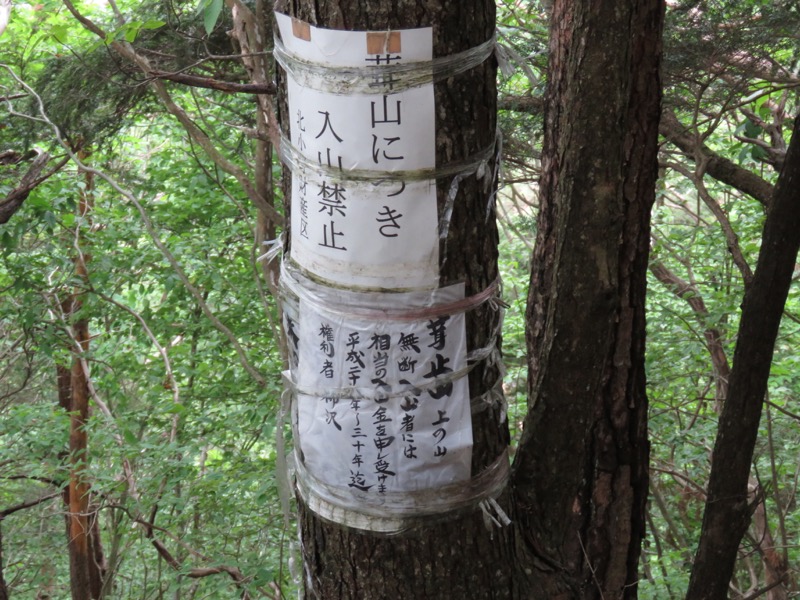 茸山につき
入山禁止
北小 財産区
茸山 上の山
無断入山者には
相当の入山金を申し受けま
平成二十 年〜三十年迄
権利者 柳沢